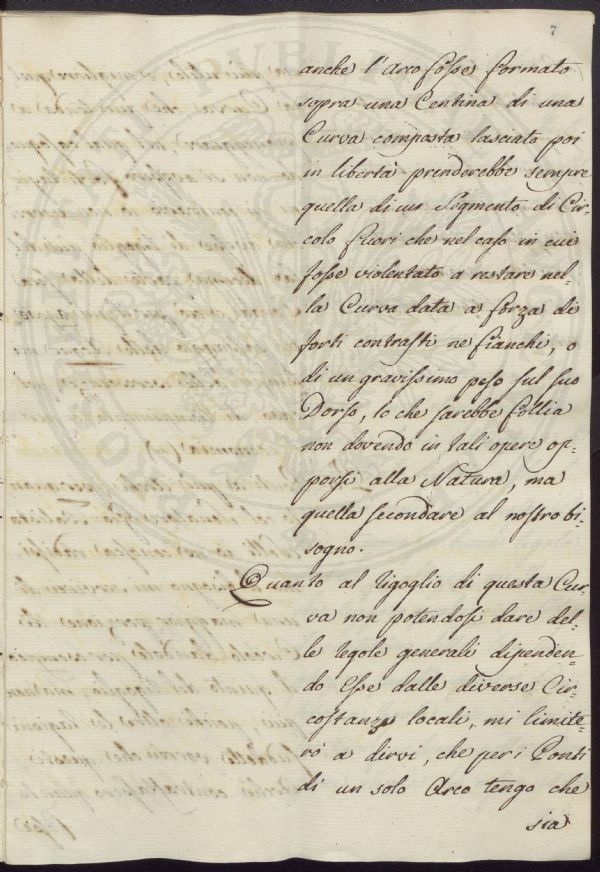 7
anche l'Arco fosse formato
sopra una Centina di una
Curva composta lasciato poi
in libertà prenderebbe sempre
quella di un Segmento di Cir-
colo fuori che nel caso in cui
fosse violentato a restare nel-
la Curva data a forza di
forti contrasti ne fianchi, o
di un gravissimo peso sul suo
Dorso, lo che sarebbe follia
non dovendo in tali opere op-
porsi alla Natura, ma
quella secondare al nostro bi-
sogno.
Quanto al rigoglio di questa Cur-
va non potendosi dare del-
le regole generali dipenden-
do esse dalle diverse Cir-
costanze locali, mi limite-
rò a dirvi, che per i Ponti
di un solo Arco tengo che
sia